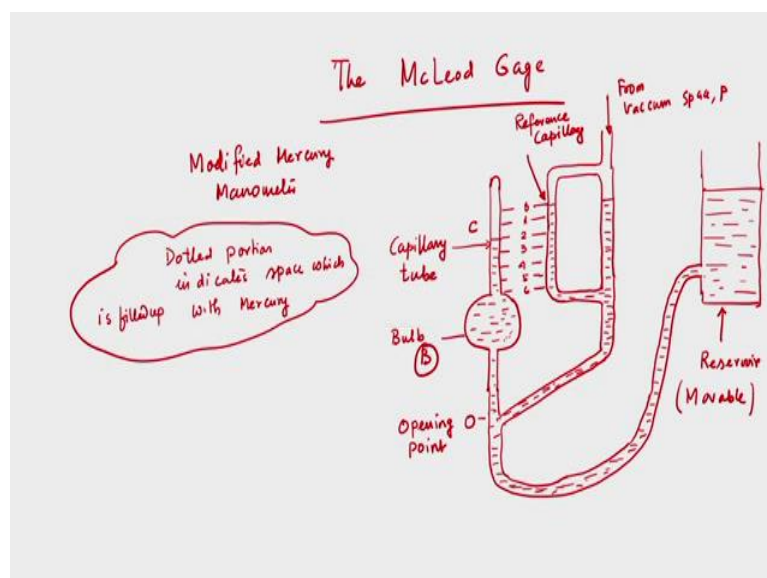 The McLeod Gage
From
Vaccum Space, P
Reference
Capillary
Modified Mercury
Manometer
Dotted portion
indicates space which
is filledup with Mercury
C
Capillary
tube
0
1
2
3
4
5
6
Bulb
B
Opening O
point
Reservoir
(Movable)